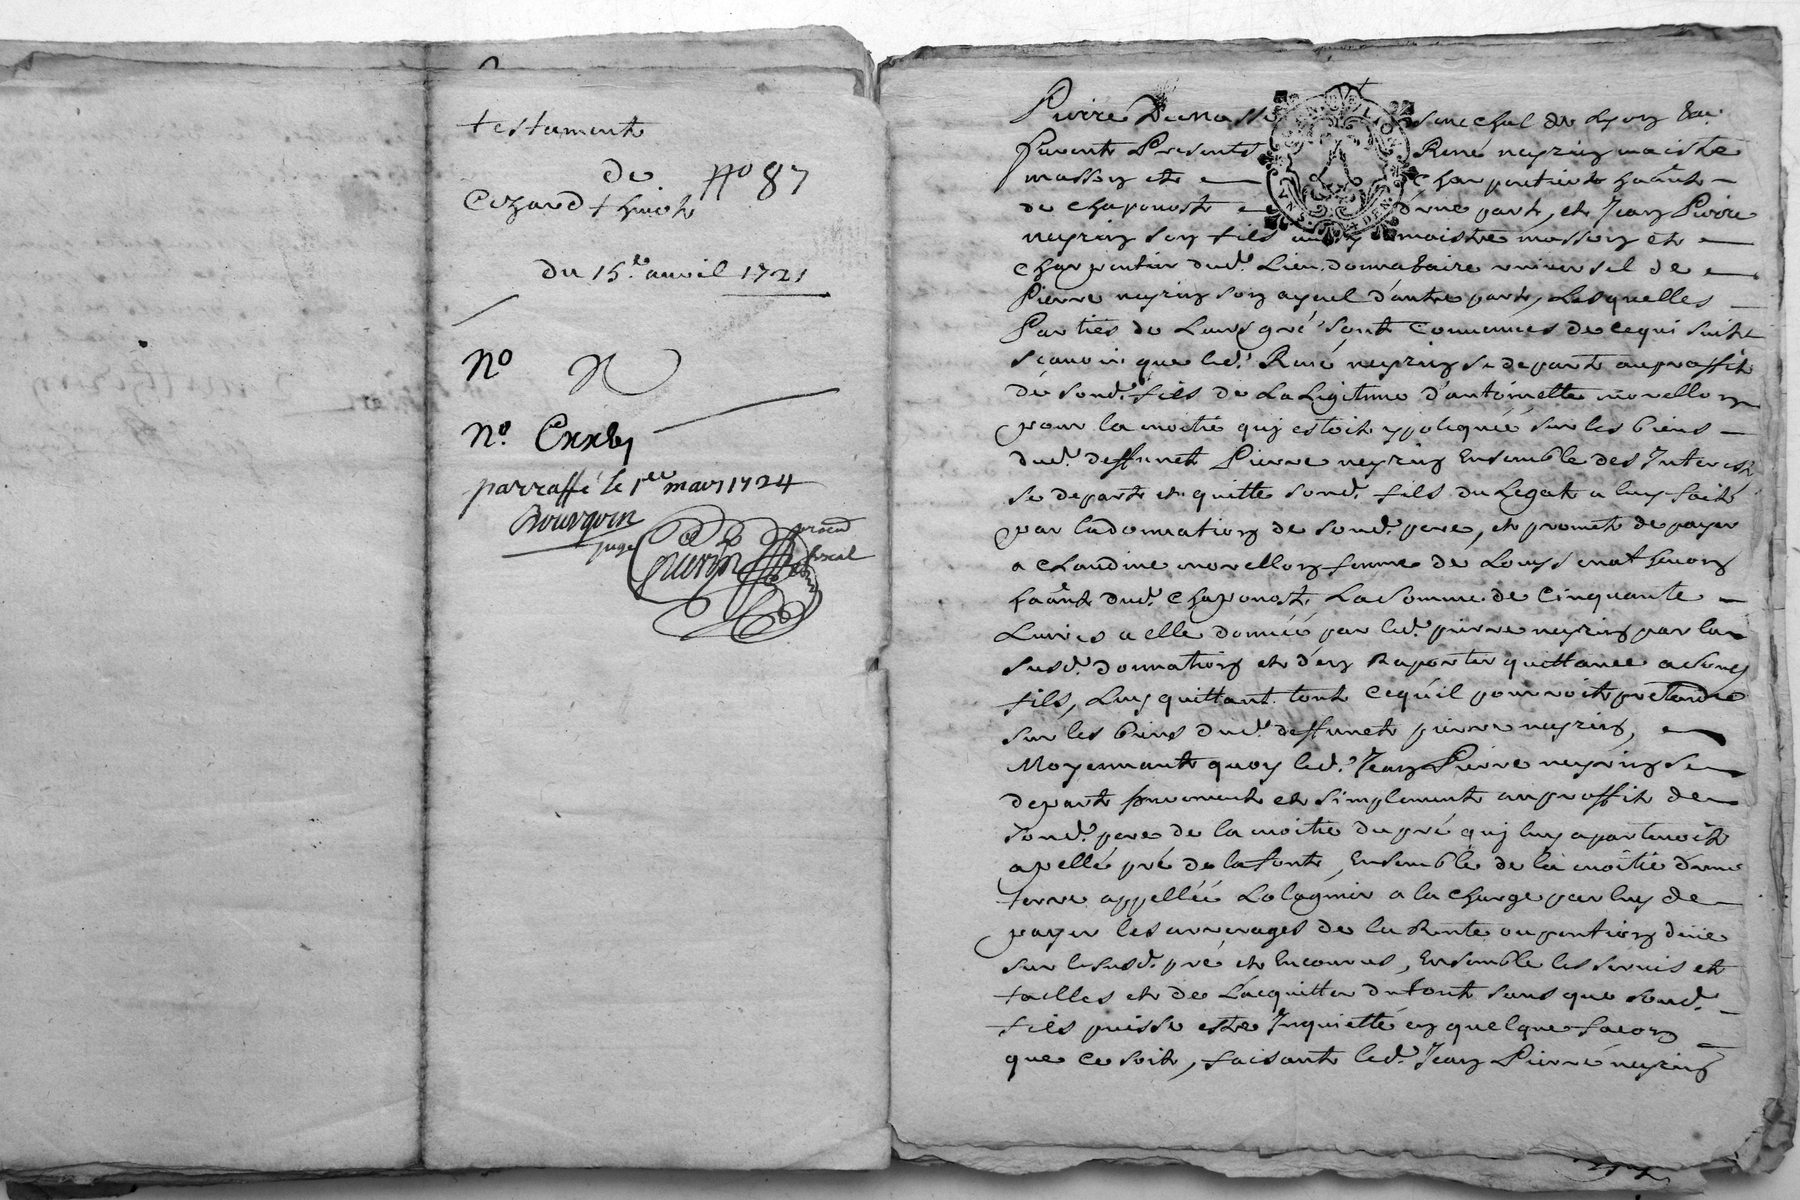 testament
de
No 87
Cezard thiot
du 15.e auril 1721
No
No. Cxxbj
parraffé le 1er mars 1724
Bourgoin
juge
procu
fiscal
Pierre Demasso senechal de Lyon
furent Presents René neyrin maistre
masson et charpentier haant
de chaponost d'une part, et Jean Pierre
neyrin son fils aussy maistre masson et
charpentier dud. Lieu donnataire vniuersel de
Pierre neyrin son ayeul d'autre part, Lesquelles
Parties de Leurs gré sont Conuenues de ce qui suit
scauoir que led. René neyrin se depart au proffit
de sond. fils de La Legitime d'antoinette morellon
pour la moitié quj estoit ypotequéé sur les biens
dud. deffunct Pierre neyrin Ensemble des Interest
se depart et quitte sond. fils du Legat a luy fait
par la donnation de sond. pere, et promet de payer
a claudine morellon femme de Louys
haant dud. chaponost La somme de Cinquante
Liures a elle donnéé par led. pierre neyrin par la
susd. donnation et d'en Raporter quittance a sond.
fils, Luy quittant tout ce qu'il pourroit pretandre
sur les biens dud. deffunct pierre neyrin,
Moyennant quoy led. Jean Pierre neyrin se
depart purement et simplement au proffit de
sond. pere de la moitie du pré quj luy apartenoit
apellé pré de la font, Ensemble de la moitié d'une
terre appelléé a la charge par luy de
payer les arrerages de la Rente ou pention deüe
sur le susd. pré et Encourus, Ensemble les seruis et
tailles et de L'acquitter du tout sans que sond.
fils puisse estre Inquietté en quelque facon
que ce soit, faisant led. Jean Pierre neyrin